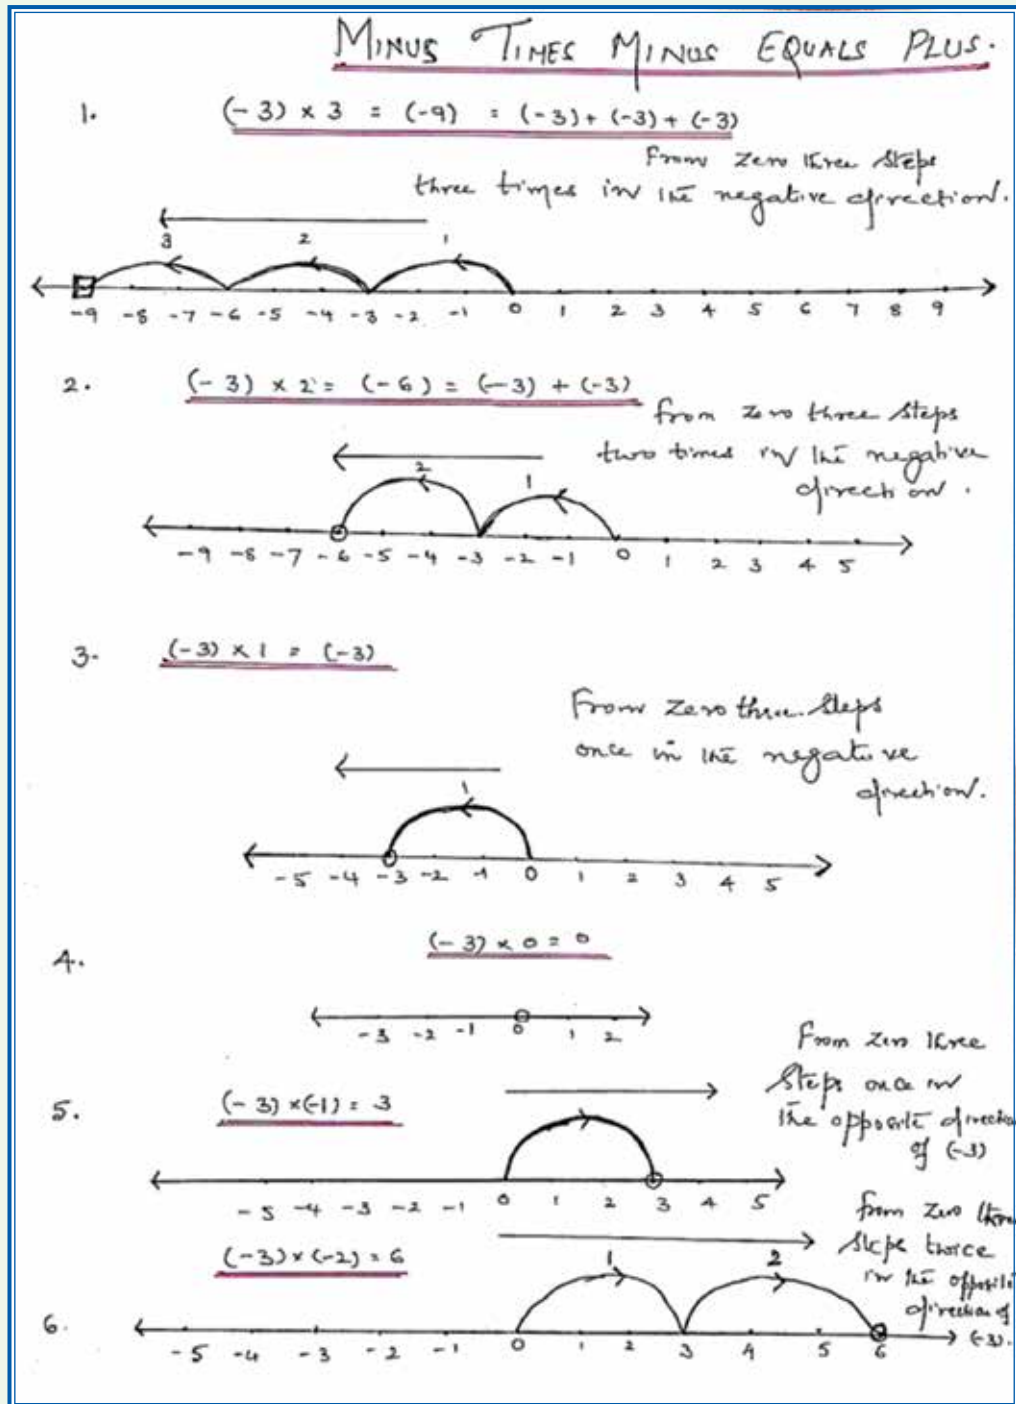 MINUS TIMES MINUS EQUALS PLUS.
1. (-3) × 3 = (-9) = (-3) + (-3) + (-3)
From zero three steps
three times in the negative direction.
3 2 1
-9 -8 -7 -6 -5 -4 -3 -2 -1 0 1 2 3 4 5 6 7 8 9
2. (-3) × 2 = (-6) = (-3) + (-3)
from zero three steps
two times in the negative
direction.
2 1
-9 -8 -7 -6 -5 -4 -3 -2 -1 0 1 2 3 4 5
3. (-3) × 1 = (-3)
From zero three steps
once in the negative
direction.
1
-5 -4 -3 -2 -1 0 1 2 3 4 5
4. (-3) × 0 = 0
-3 -2 -1 0 1 2
5. (-3) × (-1) = 3
From zero three
steps once in
the opposite directio
of (-3)
-5 -4 -3 -2 -1 0 1 2 3 4 5
6. (-3) × (-2) = 6
from zero three
steps twice
in the opposite
direction of
(-3).
1 2
-5 -4 -3 -2 -1 0 1 2 3 4 5 6